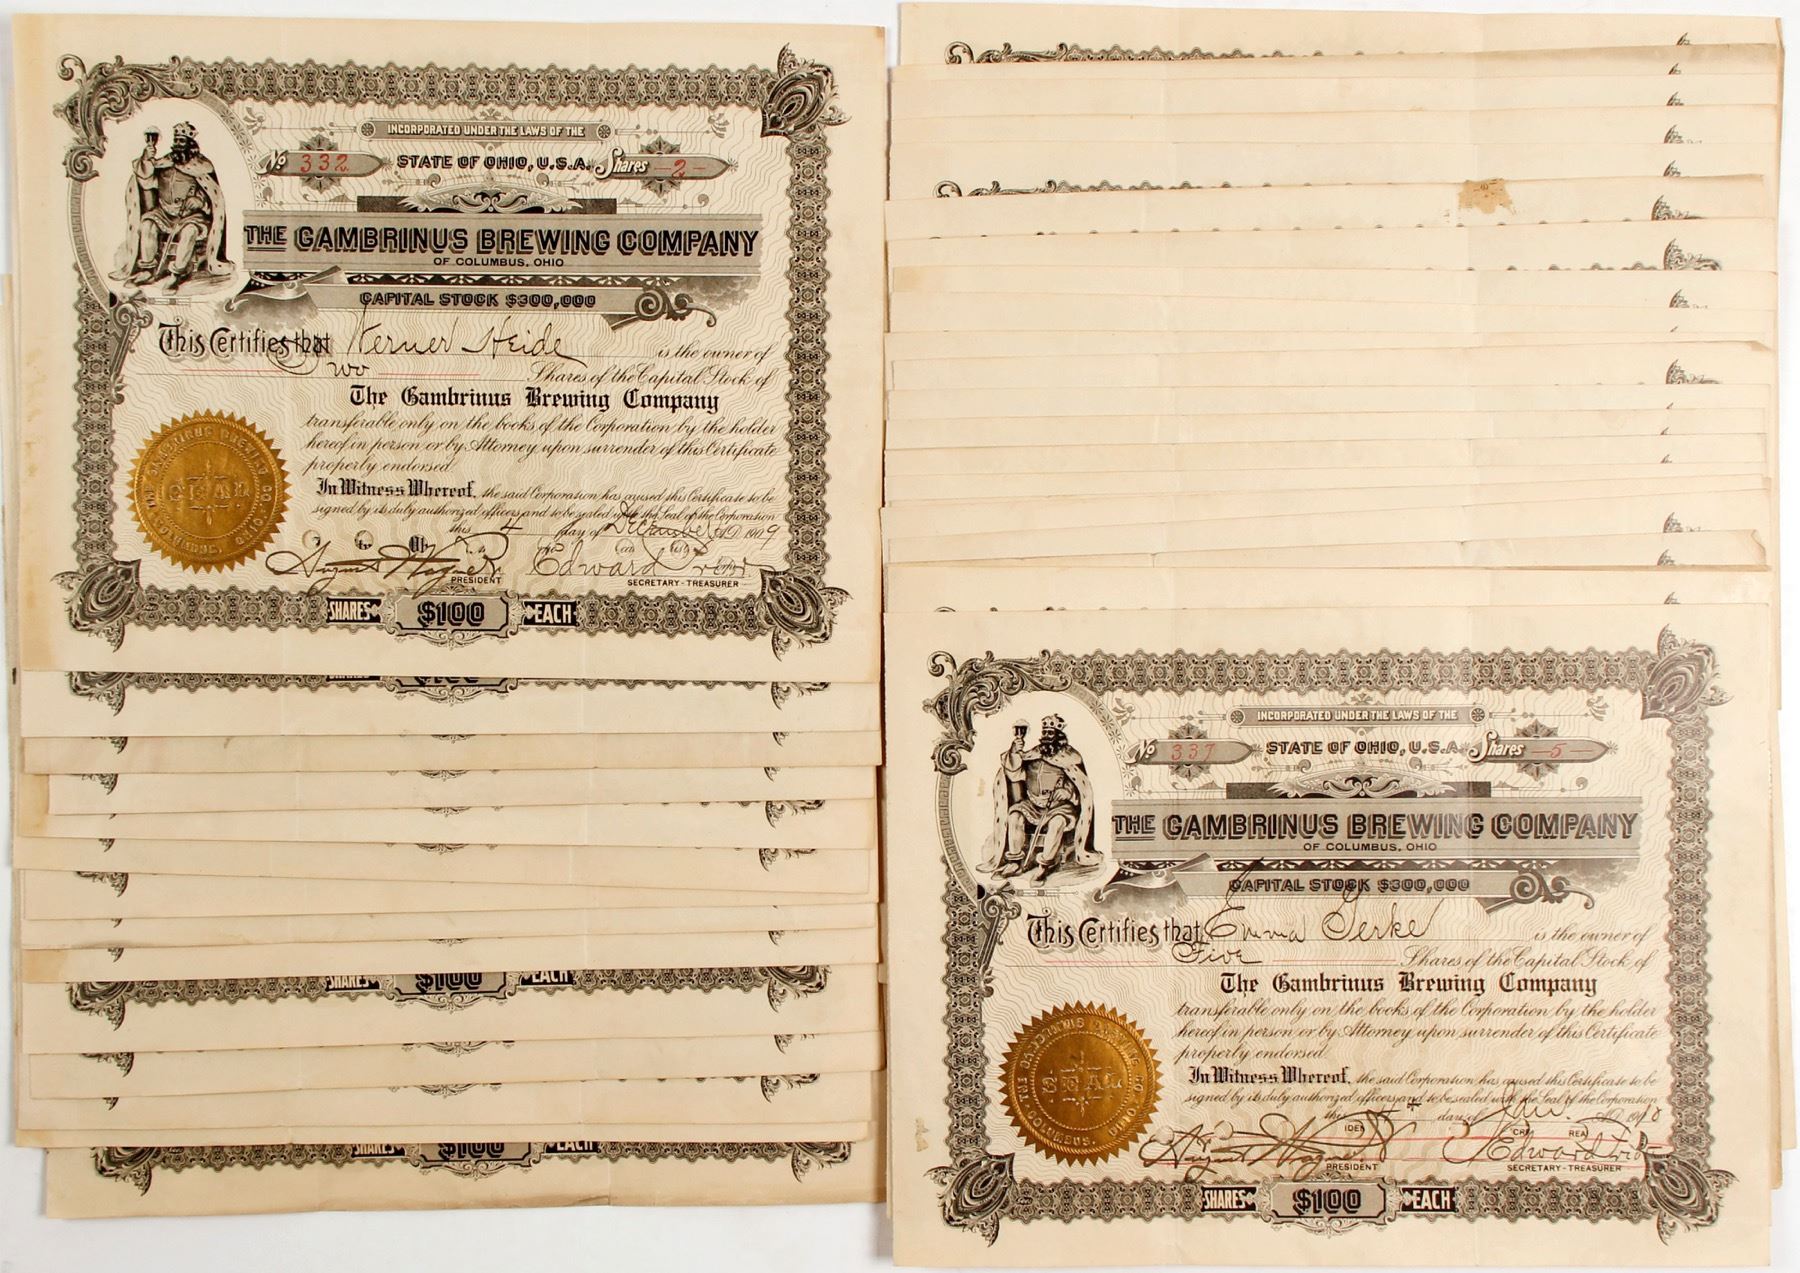 INCORPORATED UNDER THE LAWS OF THE
No 332 STATE OF OHIO, U.S.A. Shares 2
THE GAMBRINUS BREWING COMPANY
OF COLUMBUS, OHIO
CAPITAL STOCK $300,000
This Certifies that Werner Heide is the owner of
Two Shares of the Capital Stock of
The Gambrinus Brewing Company
transferable only on the books of the Corporation by the holder
hereof in person or by Attorney upon surrender of this Certificate
properly endorsed.
In Witness Whereof, the said Corporation has caused this Certificate to be
signed by its duly authorized officers and to be sealed with the Seal of the Corporation
this 4 day of December A.D. 1909
August Wagner Edward
PRESIDENT SECRETARY-TREASURER
SHARES $100 EACH
THE GAMBRINUS BREWING CO. COLUMBUS, OHIO.
SEAL
SHARES $100 EACH
SHARES $100 EACH
INCORPORATED UNDER THE LAWS OF THE
No 337 STATE OF OHIO, U.S.A. Shares 5
THE GAMBRINUS BREWING COMPANY
OF COLUMBUS, OHIO
CAPITAL STOCK $300,000
This Certifies that Emma Gerke is the owner of
Five Shares of the Capital Stock of
The Gambrinus Brewing Company
transferable only on the books of the Corporation by the holder
hereof in person or by Attorney upon surrender of this Certificate
properly endorsed.
In Witness Whereof, the said Corporation has caused this Certificate to be
signed by its duly authorized officers and to be sealed with the Seal of the Corporation
this 4 day of Jan. A.D. 1910
August Wagner Edward
PRESIDENT SECRETARY-TREASURER
SHARES $100 EACH
THE GAMBRINUS BREWING CO. COLUMBUS, OHIO
SEAL